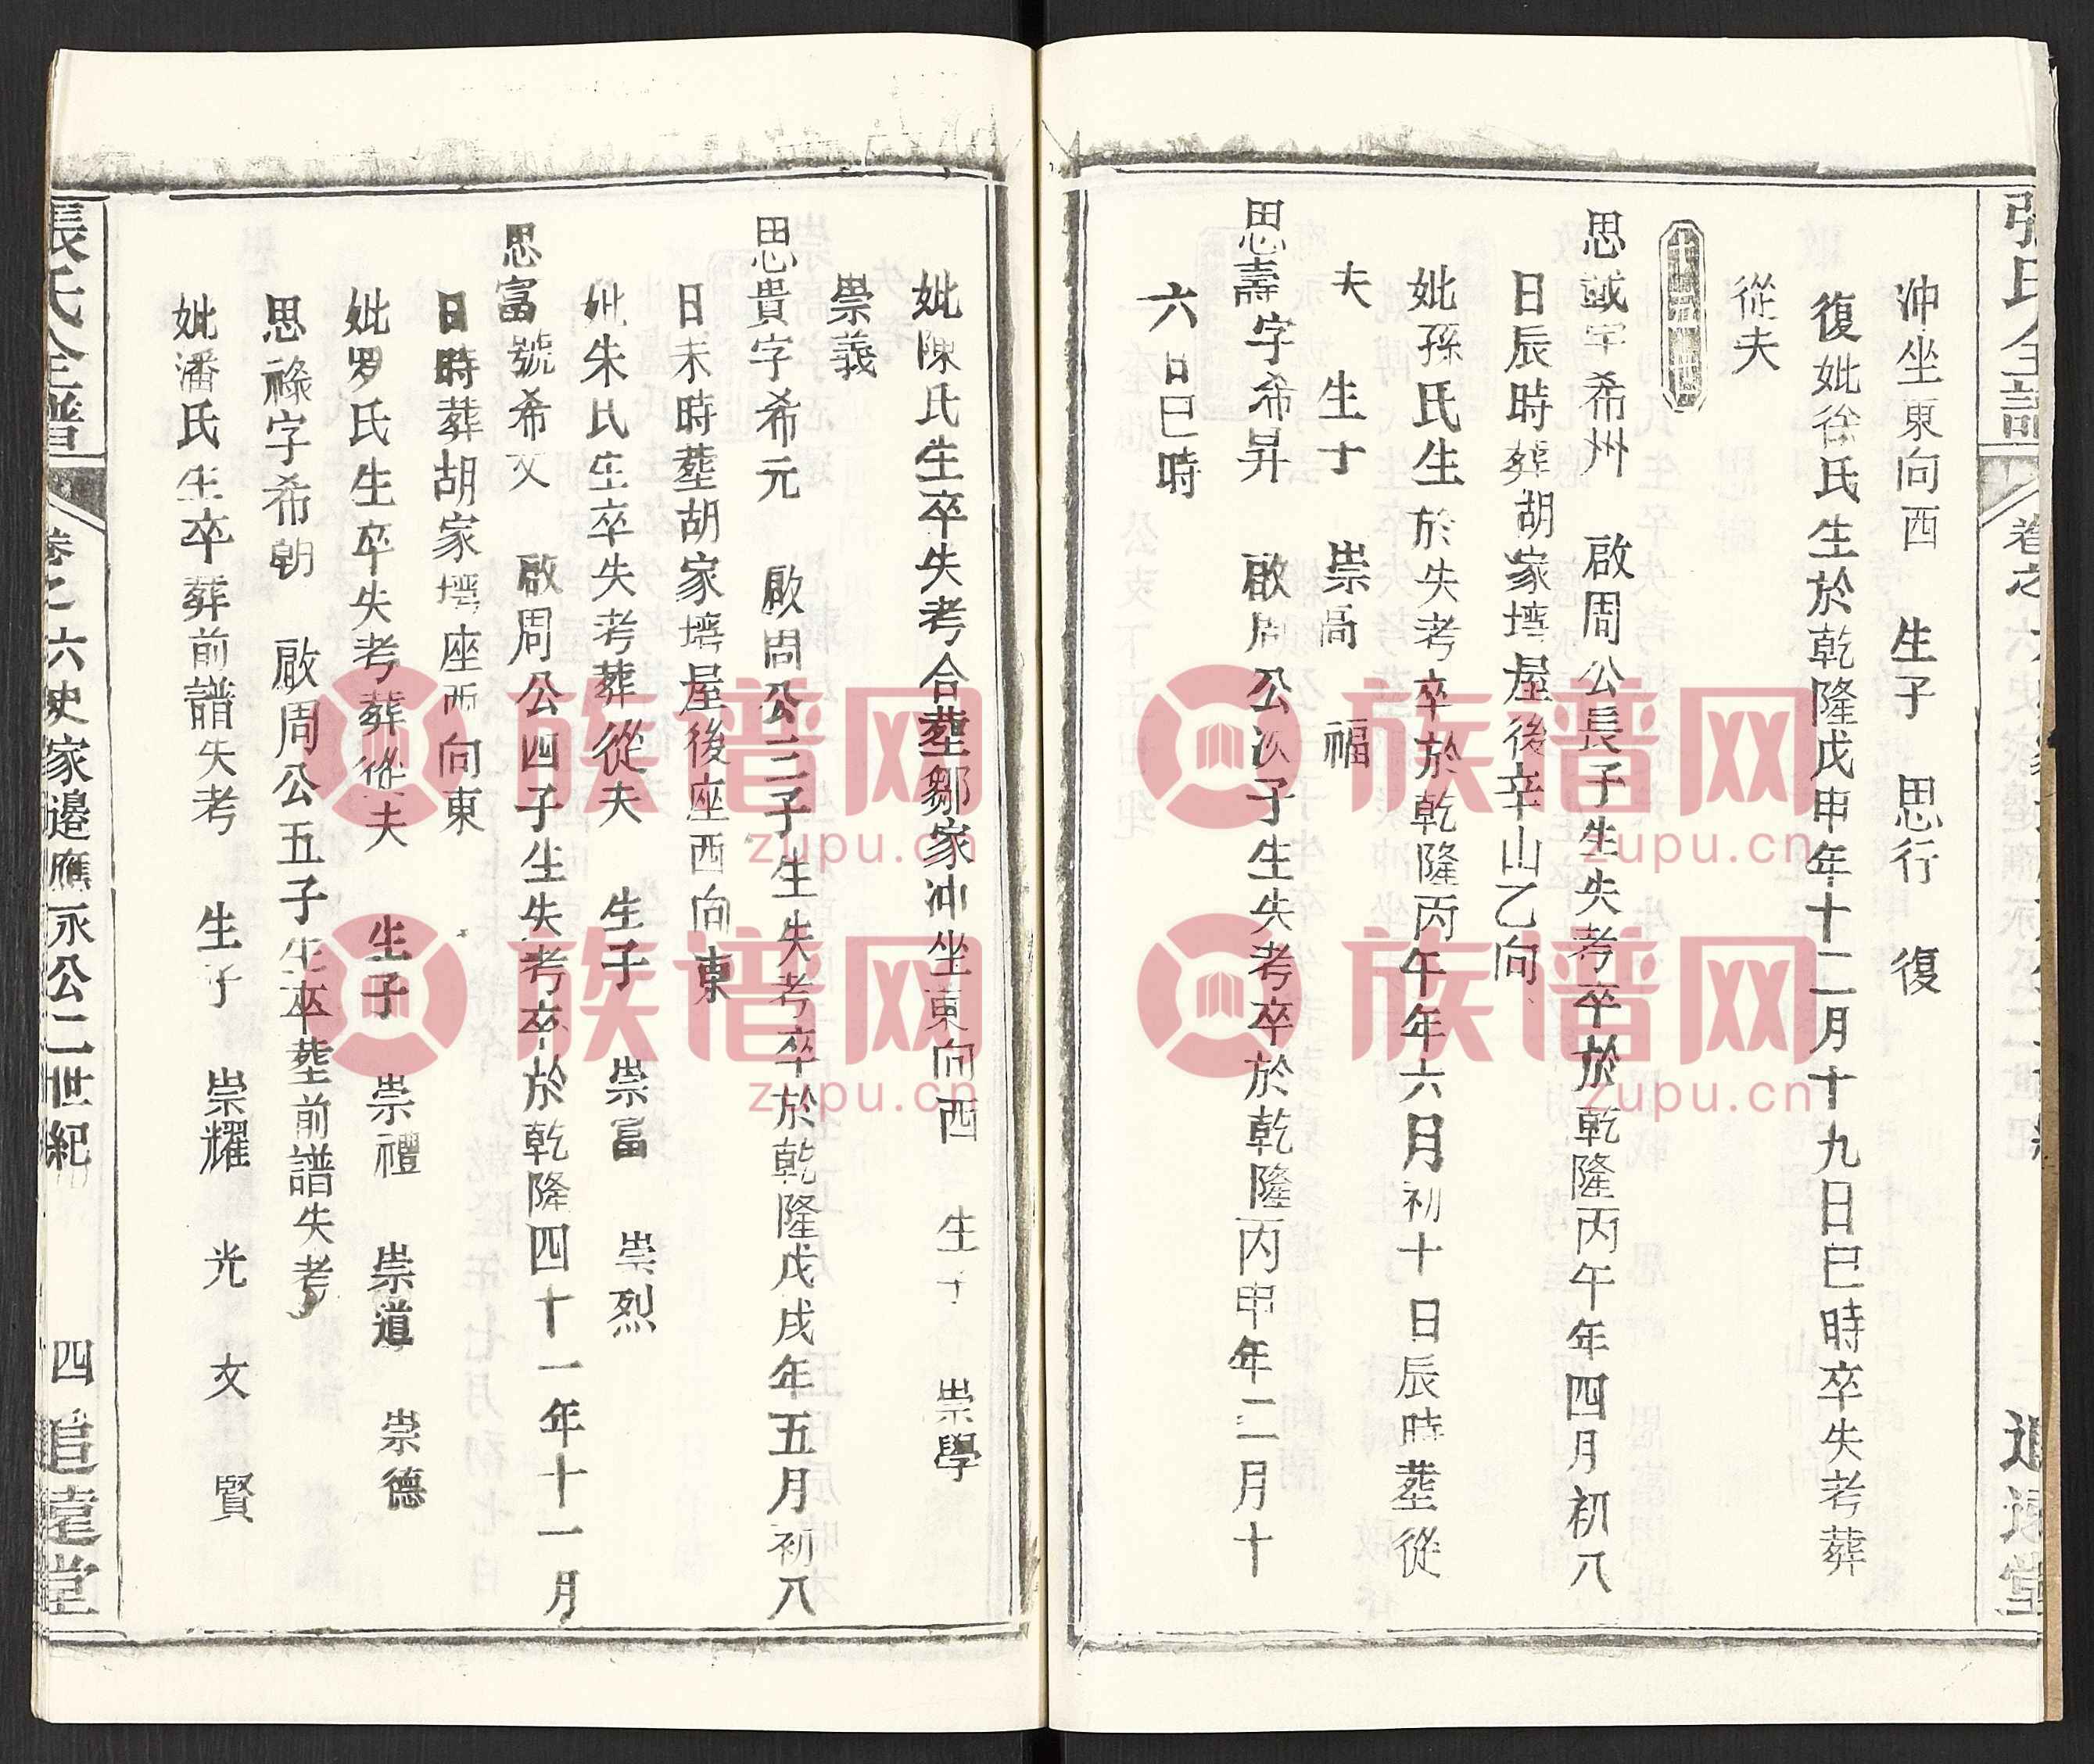 冲坐東向西　生子　思行　復
復妣徐氏生於乾隆戊申年十二月十九日巳時卒失考葬
從夫
思 字希州　啟周公長子生失考卒於乾隆丙午年四月初八
日辰時葬胡家塆屋後辛山乙向
妣孫氏生於失考卒於乾隆丙午年六月初十日辰時塟從
夫　生子　崇高　福
思壽字希昇　啟周公次子生失考卒於乾隆丙申年二月十
六日巳時
妣陳氏生卒失考合塟鄒家冲坐東向西　生子　崇學
崇義
思貴字希元　啟周公三子生失考卒於乾隆戊戌年五月初八
日未時塟胡家塆屋後座西向東
妣朱氏生卒失考葬從夫　生子　崇富　崇烈
思富號希文　啟周公四子生失考卒於乾隆四十一年十一月
日時葬胡家塆座西向東
妣罗氏生卒失考葬從夫　生子　崇禮　崇道　崇德
思祿字希朝　啟周公五子生卒塟前譜失考
妣潘氏生卒葬前譜失考　生子　崇耀　光　文　賢
張氏全譜　卷之六史家邉應永公二世紀　四　追遠堂
族谱网
zupu.cn
族谱网
zupu.cn
族谱网
zupu.cn
族谱网
zupu.cn